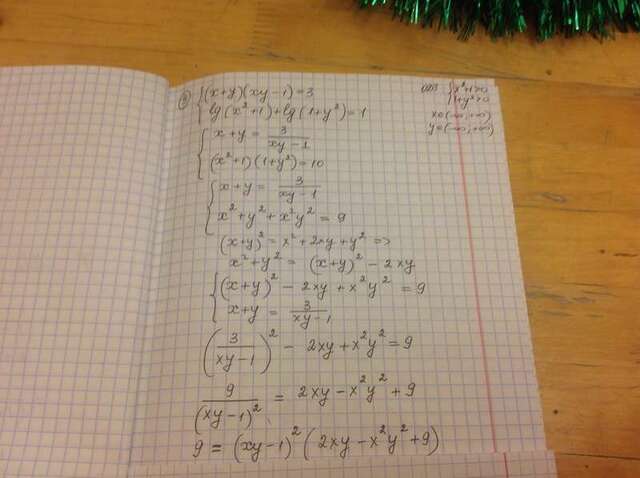 (x+y)(xy-1)=3
lg(x²+1)+lg(1+y²)=1
ОДЗ x²+1>0
1+y²>0
x=(-∞;+∞)
y=(-∞;+∞)
x+y = 3/(xy-1)
(x²+1)(1+y²)=10
x+y = 3/(xy-1)
x²+y²+x²y² = 9
(x+y)² = x²+2xy+y² =>
x²+y² = (x+y)² - 2xy
(x+y)² - 2xy + x²y² = 9
x+y = 3/(xy-1)
(3/(xy-1))² - 2xy+x²y² = 9
9/(xy-1)² = 2xy-x²y²+9
9 = (xy-1)²(2xy-x²y²+9)